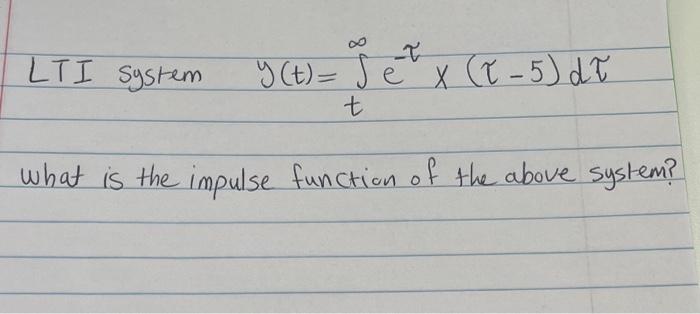 LTI System y(t) = ∫_t^∞ e^{-τ} x (τ - 5) dτ
what is the impulse function of the above system?